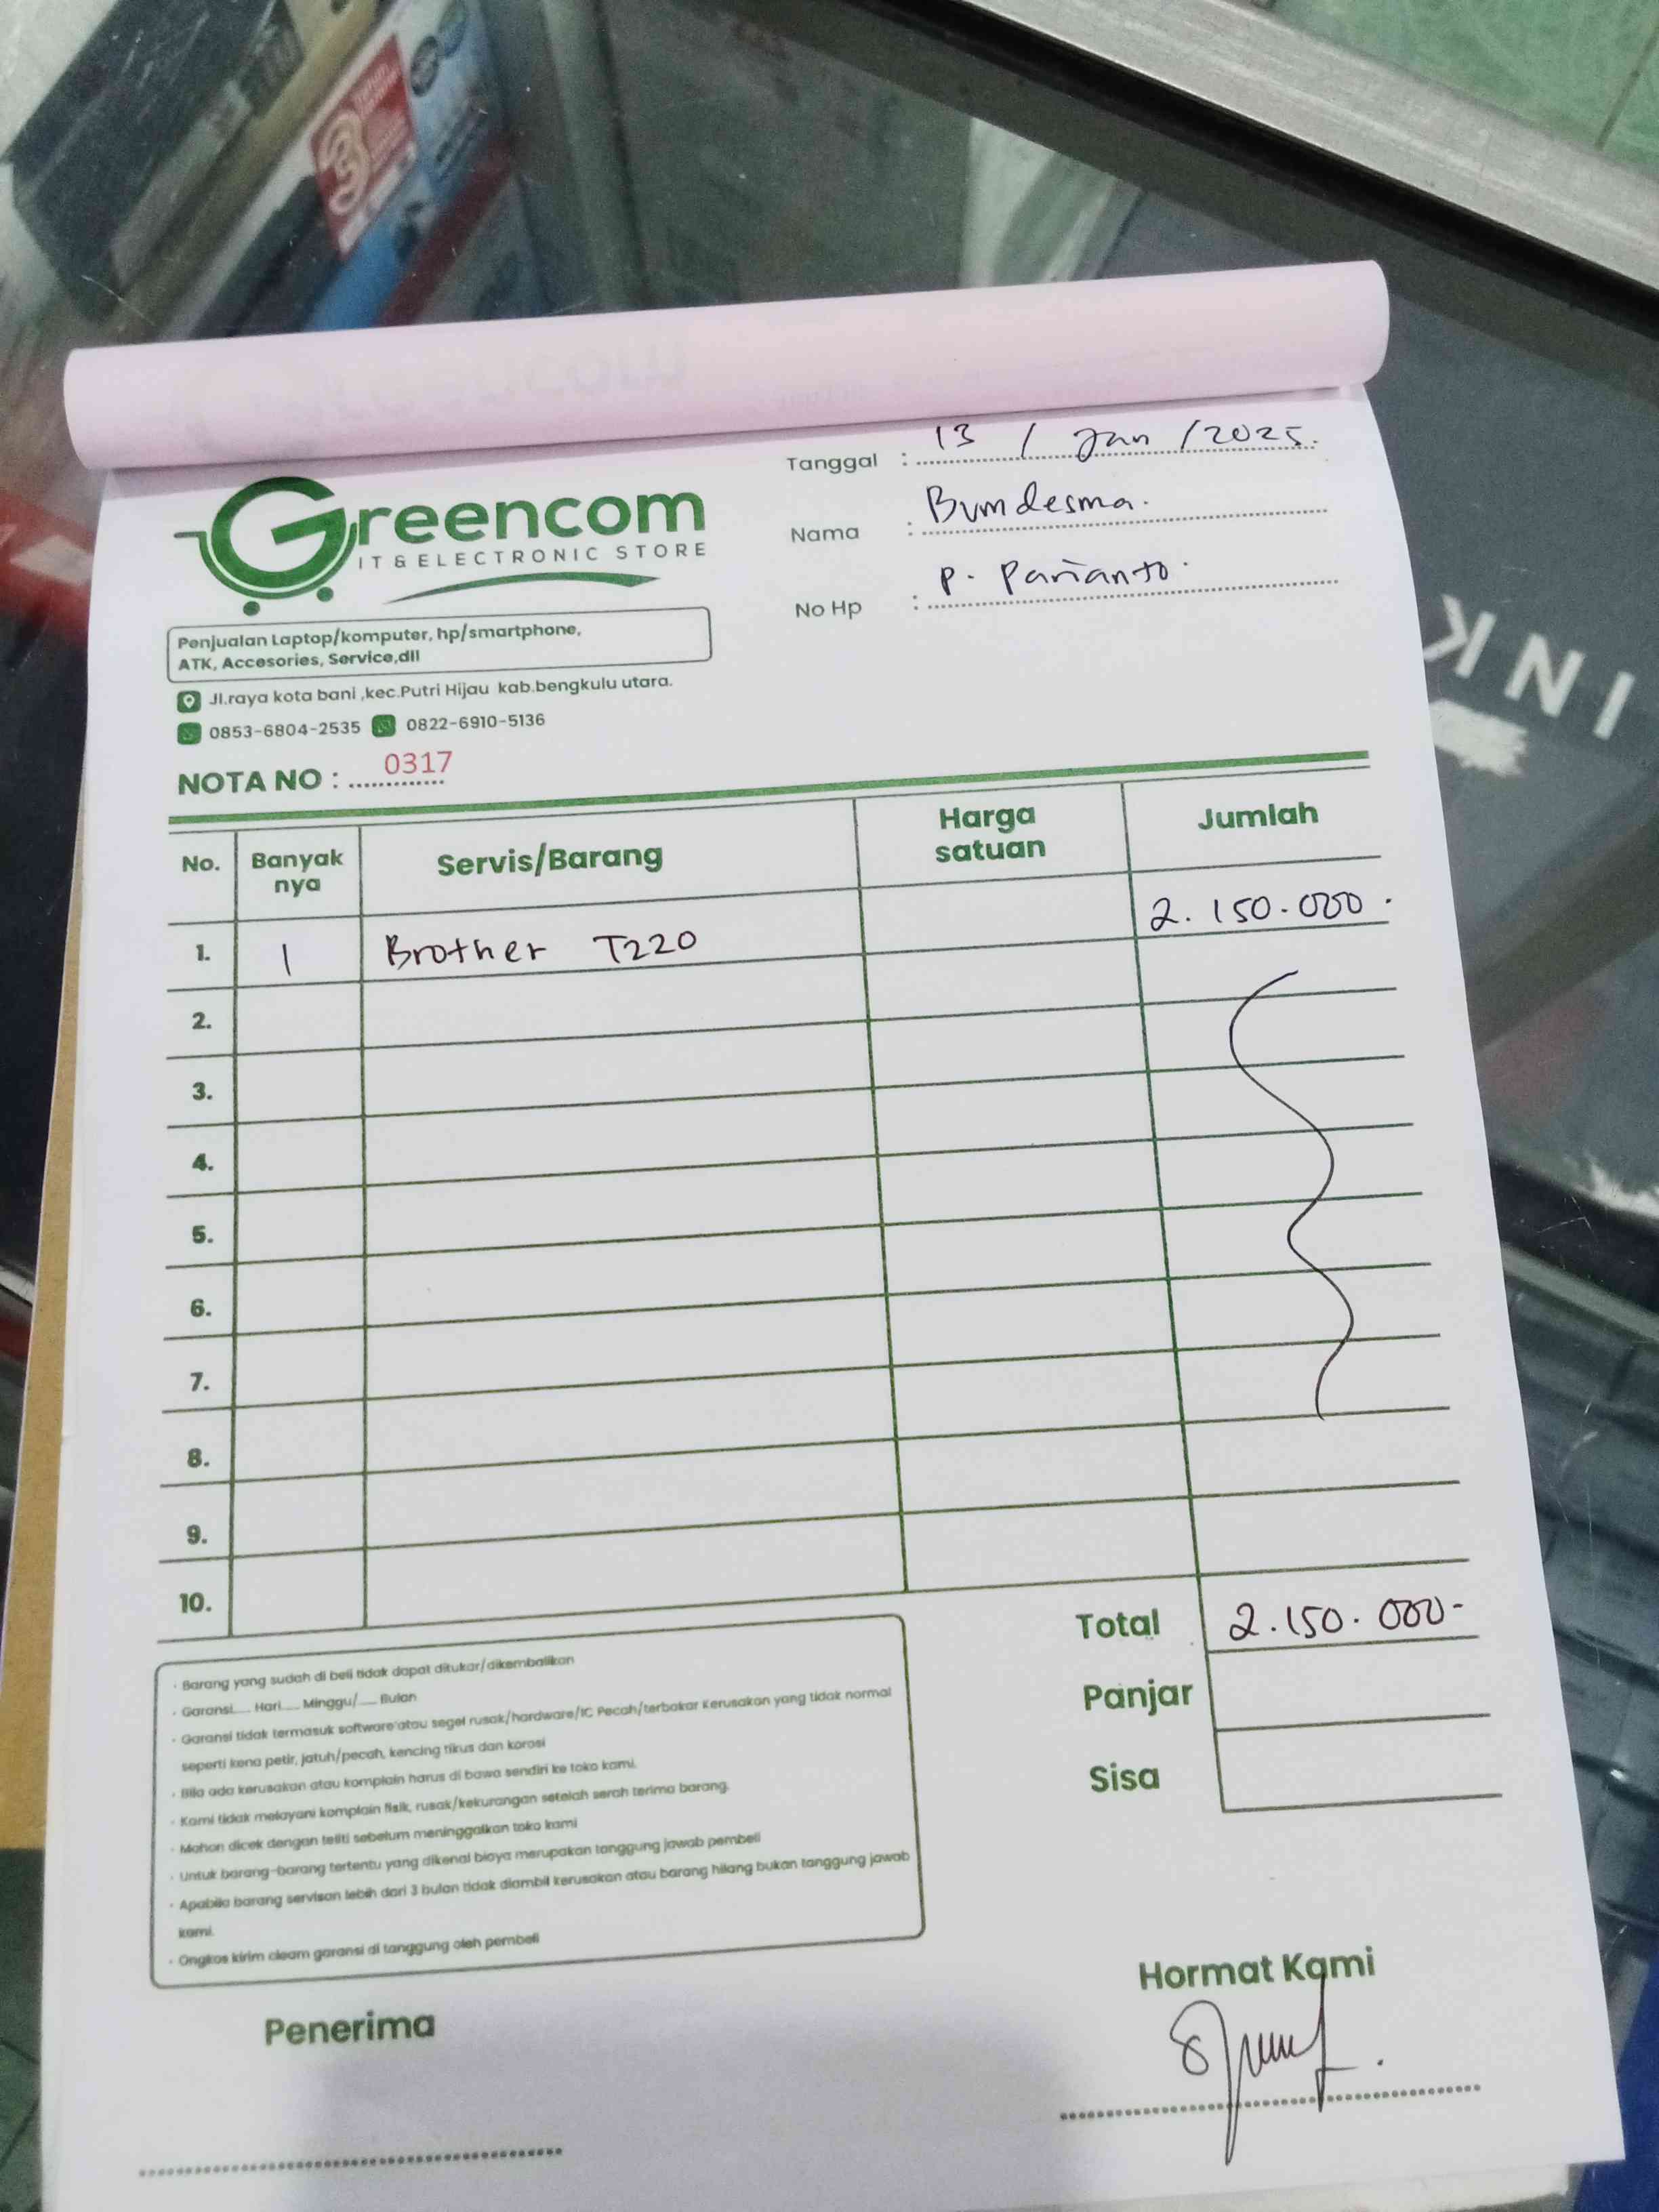 INK
Tanggal : 13 / Jan / 2025.
Nama : Bumdesma.
No Hp : P. Parianto.
Greencom
IT & ELECTRONIC STORE
Penjualan Laptop/komputer, hp/smartphone,
ATK, Accesories, Service,dll
Jl.raya kota bani ,kec.Putri Hijau kab.bengkulu utara.
0853-6804-2535 0822-6910-5136
NOTA NO : 0317
No. Banyak nya Servis/Barang Harga satuan Jumlah
1. 1 Brother T220 2.150.000.
2.
3.
4.
5.
6.
7.
8.
9.
10.
Total 2.150.000-
Panjar
Sisa
• Barang yang sudah di beli tidak dapat ditukar/dikembalikan
• Garansi..... Hari..... Minggu/..... Bulan
• Garansi tidak termasuk software'atau segel rusak/hardware/IC Pecah/terbakar Kerusakan yang tidak normal
seperti kena petir, jatuh/pecah, kencing tikus dan korosi
• Bila ada kerusakan atau komplain harus di bawa sendiri ke toko kami.
• Kami tidak melayani komplain fisik, rusak/kekurangan setelah serah terima barang.
• Mohon dicek dengan teliti sebelum meninggalkan toko kami
• Untuk barang-barang tertentu yang dikenai biaya merupakan tanggung jawab pembeli
• Apabila barang servisan lebih dari 3 bulan tidak diambil kerusakan atau barang hilang bukan tanggung jawab
kami.
• Ongkos kirim cleam garansi di tanggung oleh pembeli
Penerima
Hormat Kami